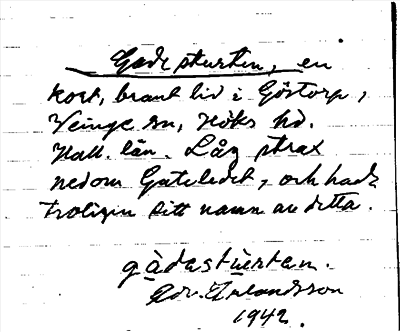 Gadesturten, en
kort, brant lid i Göstorp,
Veinge sn, Höks hd.
Hall. län. Låg strax
nedom Gateledet, och hade
troligen sitt namn av detta.
gàdastùrten.
Edv. Erlandsson
1942.